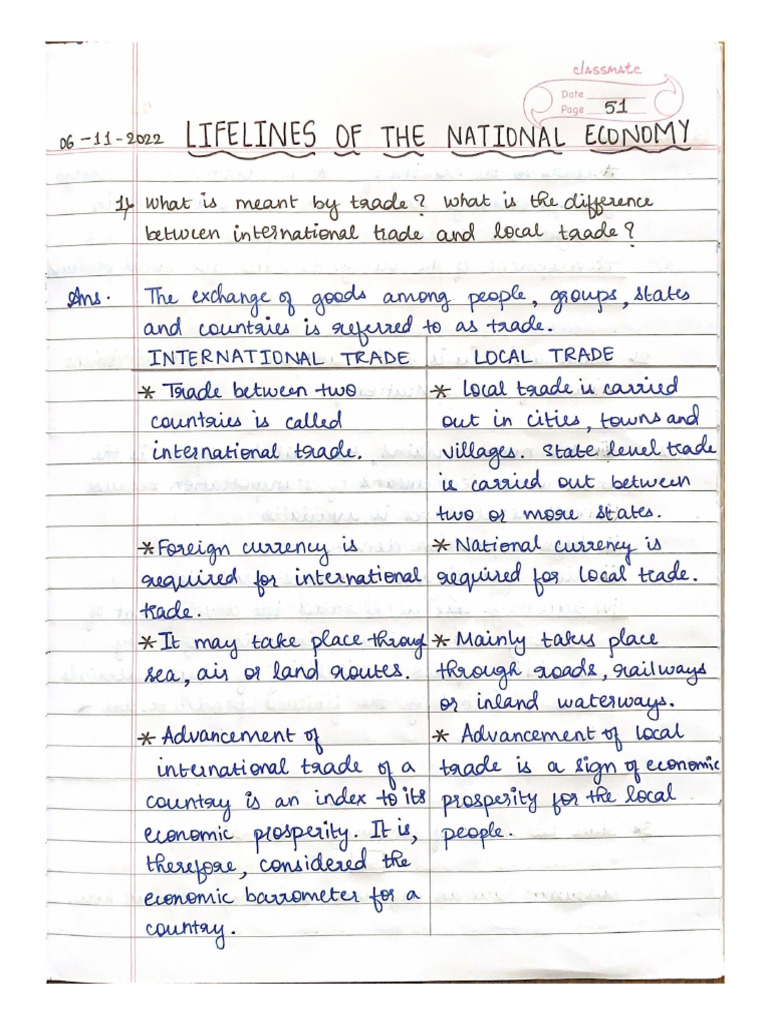 classmate
Date
Page 51
06-11-2022 LIFELINES OF THE NATIONAL ECONOMY
1) What is meant by trade? What is the difference
between international trade and local trade?
Ans. The exchange of goods among people, groups, states
and countries is referred to as trade.
INTERNATIONAL TRADE
* Trade between two
countries is called
international trade.
* Foreign currency is
required for international
trade.
* It may take place through
sea, air or land routes.
* Advancement of
international trade of a
country is an index to its
economic prosperity. It is,
therefore, considered the
economic barrometer for a
country.
LOCAL TRADE
* Local trade is carried
out in cities, towns and
villages. State level trade
is carried out between
two or more states.
* National currency is
required for local trade.
* Mainly takes place
through roads, railways
or inland waterways.
* Advancement of local
trade is a sign of economic
prosperity for the local
people.